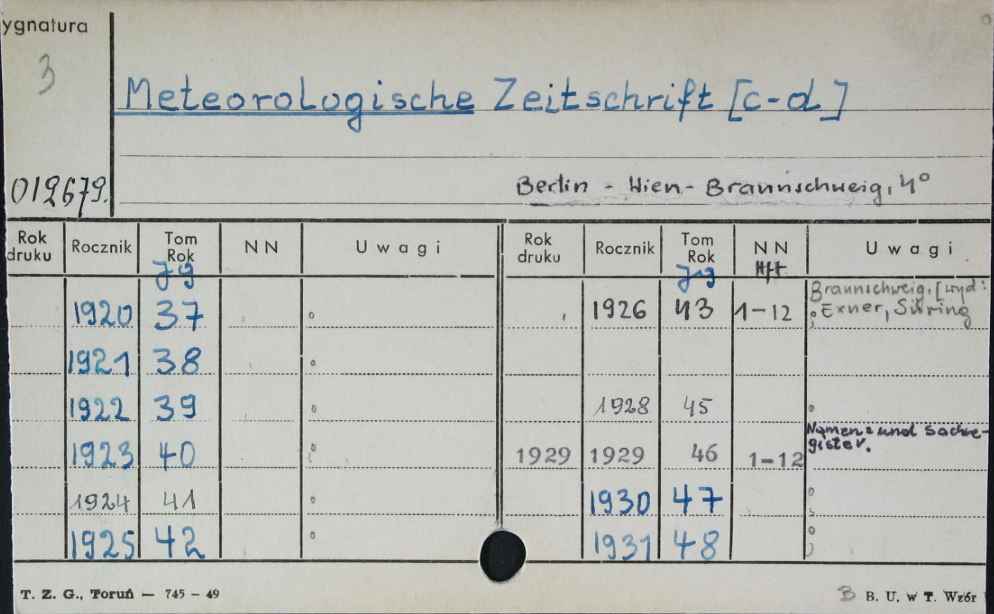 ygnatura
3
Meteorologische Zeitschrift [c-d]
012679.
Berlin - Wien - Braunschweig, 4°
Rok druku Rocznik Tom Rok Jg NN Uwagi Rok druku Rocznik Tom Rok Jg NN Hft Uwagi
1920 37 1926 43 1-12 Braunschweig. [wyd: Exner, Süring
1921 38
1922 39 1928 45
1923 40 1929 1929 46 1-12 Namen- und Sachre-gister.
1924 41 1930 47
1925 42 1931 48
T. Z. G., Toruń — 745 - 49
B B. U. w T. Wzór